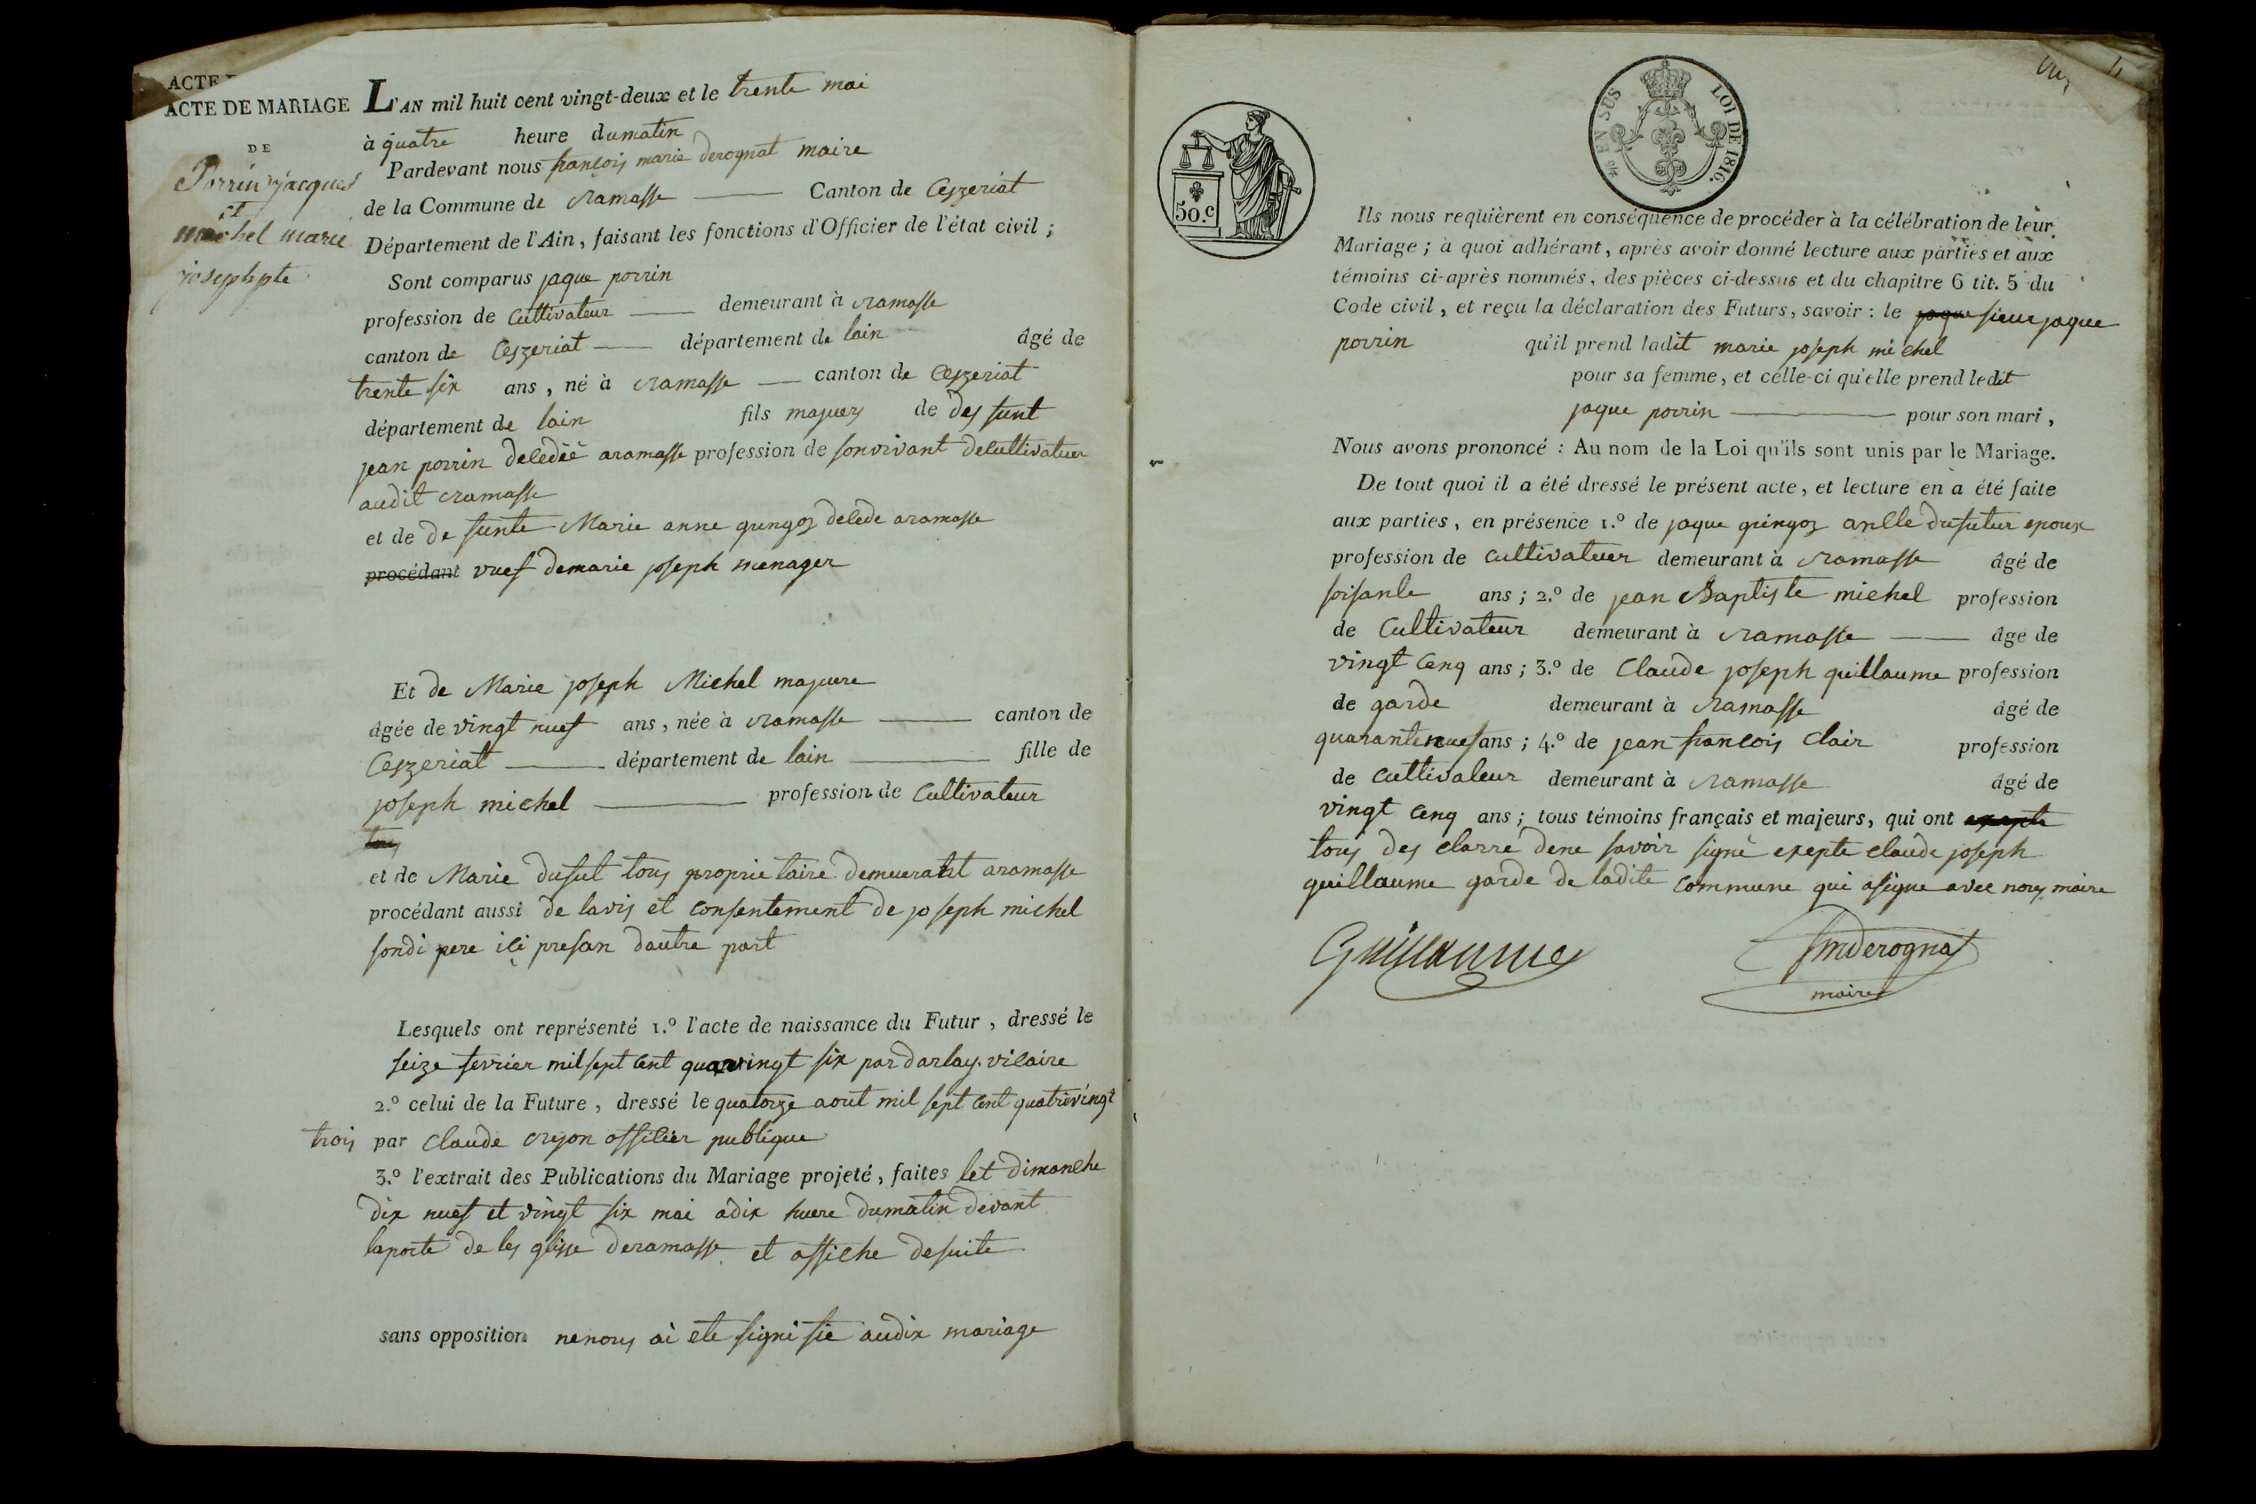 ACTE
ACTE DE MARIAGE
DE
Porrin jacques
et
michel marie
josephpte
L'AN mil huit cent vingt-deux et le trente mai
à quatre heure dumatin
Pardevant nous françois marie derognat maire
de la Commune de ramasse Canton de Ceyzeriat
Département de l'Ain, faisant les fonctions d'Officier de l'état civil ;
Sont comparus jaque porrin
profession de cultivateur demeurant à ramasse
canton de Ceyzeriat département de lain âgé de
trente six ans, né à ramasse canton de Ceyzeriat
département de lain fils majuers de des funt
jean porrin deledéé aramasse profession de sonvivant decultivatuer
audit ramasse
et de de funte Marie anne gungoz delede aramasse
procédant vuef demarie joseph menager
Et de Marie joseph Michel majuere
âgée de vingt nuef ans, née à ramasse canton de
Ceyzeriat département de lain fille de
joseph michel profession de Cultivateur
tous
et de Marie dufut tous proprietaire demeurant aramasse
procédant aussi de lavis et consentement de joseph michel
sondi pere ici presan dautre part
Lesquels ont représenté 1.º l'acte de naissance du Futur, dressé le
seize fevrier milsept cent quarvingt six par darlay vicaire
2.º celui de la Future, dressé le quatorze aout mil sept cent quatrevingt
trois par Claude offilier publique
3.º l'extrait des Publications du Mariage projeté, faites let dimanche
dix nuef et vingt six mai adix huere dumatin devant
laporte de les glisse deramasse et affiche desuite
sans opposition nenous ai ete signifie audix mariage
50.c
EN SUS LOI DE 1816.
Ils nous requièrent en conséquence de procéder à la célébration de leur
Mariage ; à quoi adhérant, après avoir donné lecture aux parties et aux
témoins ci-après nommés, des pièces ci-dessus et du chapitre 6 tit. 5 du
Code civil, et reçu la déclaration des Futurs, savoir : le jaque sieur jaque
porrin qu'il prend ladit marie joseph michel
pour sa femme, et celle-ci qu'elle prend ledit
jaque porrin pour son mari,
Nous avons prononcé : Au nom de la Loi qu'ils sont unis par le Mariage.
De tout quoi il a été dressé le présent acte, et lecture en a été faite
aux parties, en présence 1.º de jaque guingoz onlle dufutur epoux
profession de cultivatuer demeurant à ramasse âgé de
soisante ans ; 2.º de jean Baptiste michel profession
de Cultivateur demeurant à ramasse âgé de
vingt cenq ans ; 3.º de Claude joseph guillaume profession
de garde demeurant à ramasse âgé de
quarantenuef ans ; 4.º de jean francois Clair profession
de cultivateur demeurant à ramasse âgé de
vingt cenq ans ; tous témoins français et majeurs, qui ont exepte
tous des clarré dene savoir signé exepte claude joseph
guillaume garde de ladite commune qui asigne avec nous maire
Guillaume
fmderognat
maire